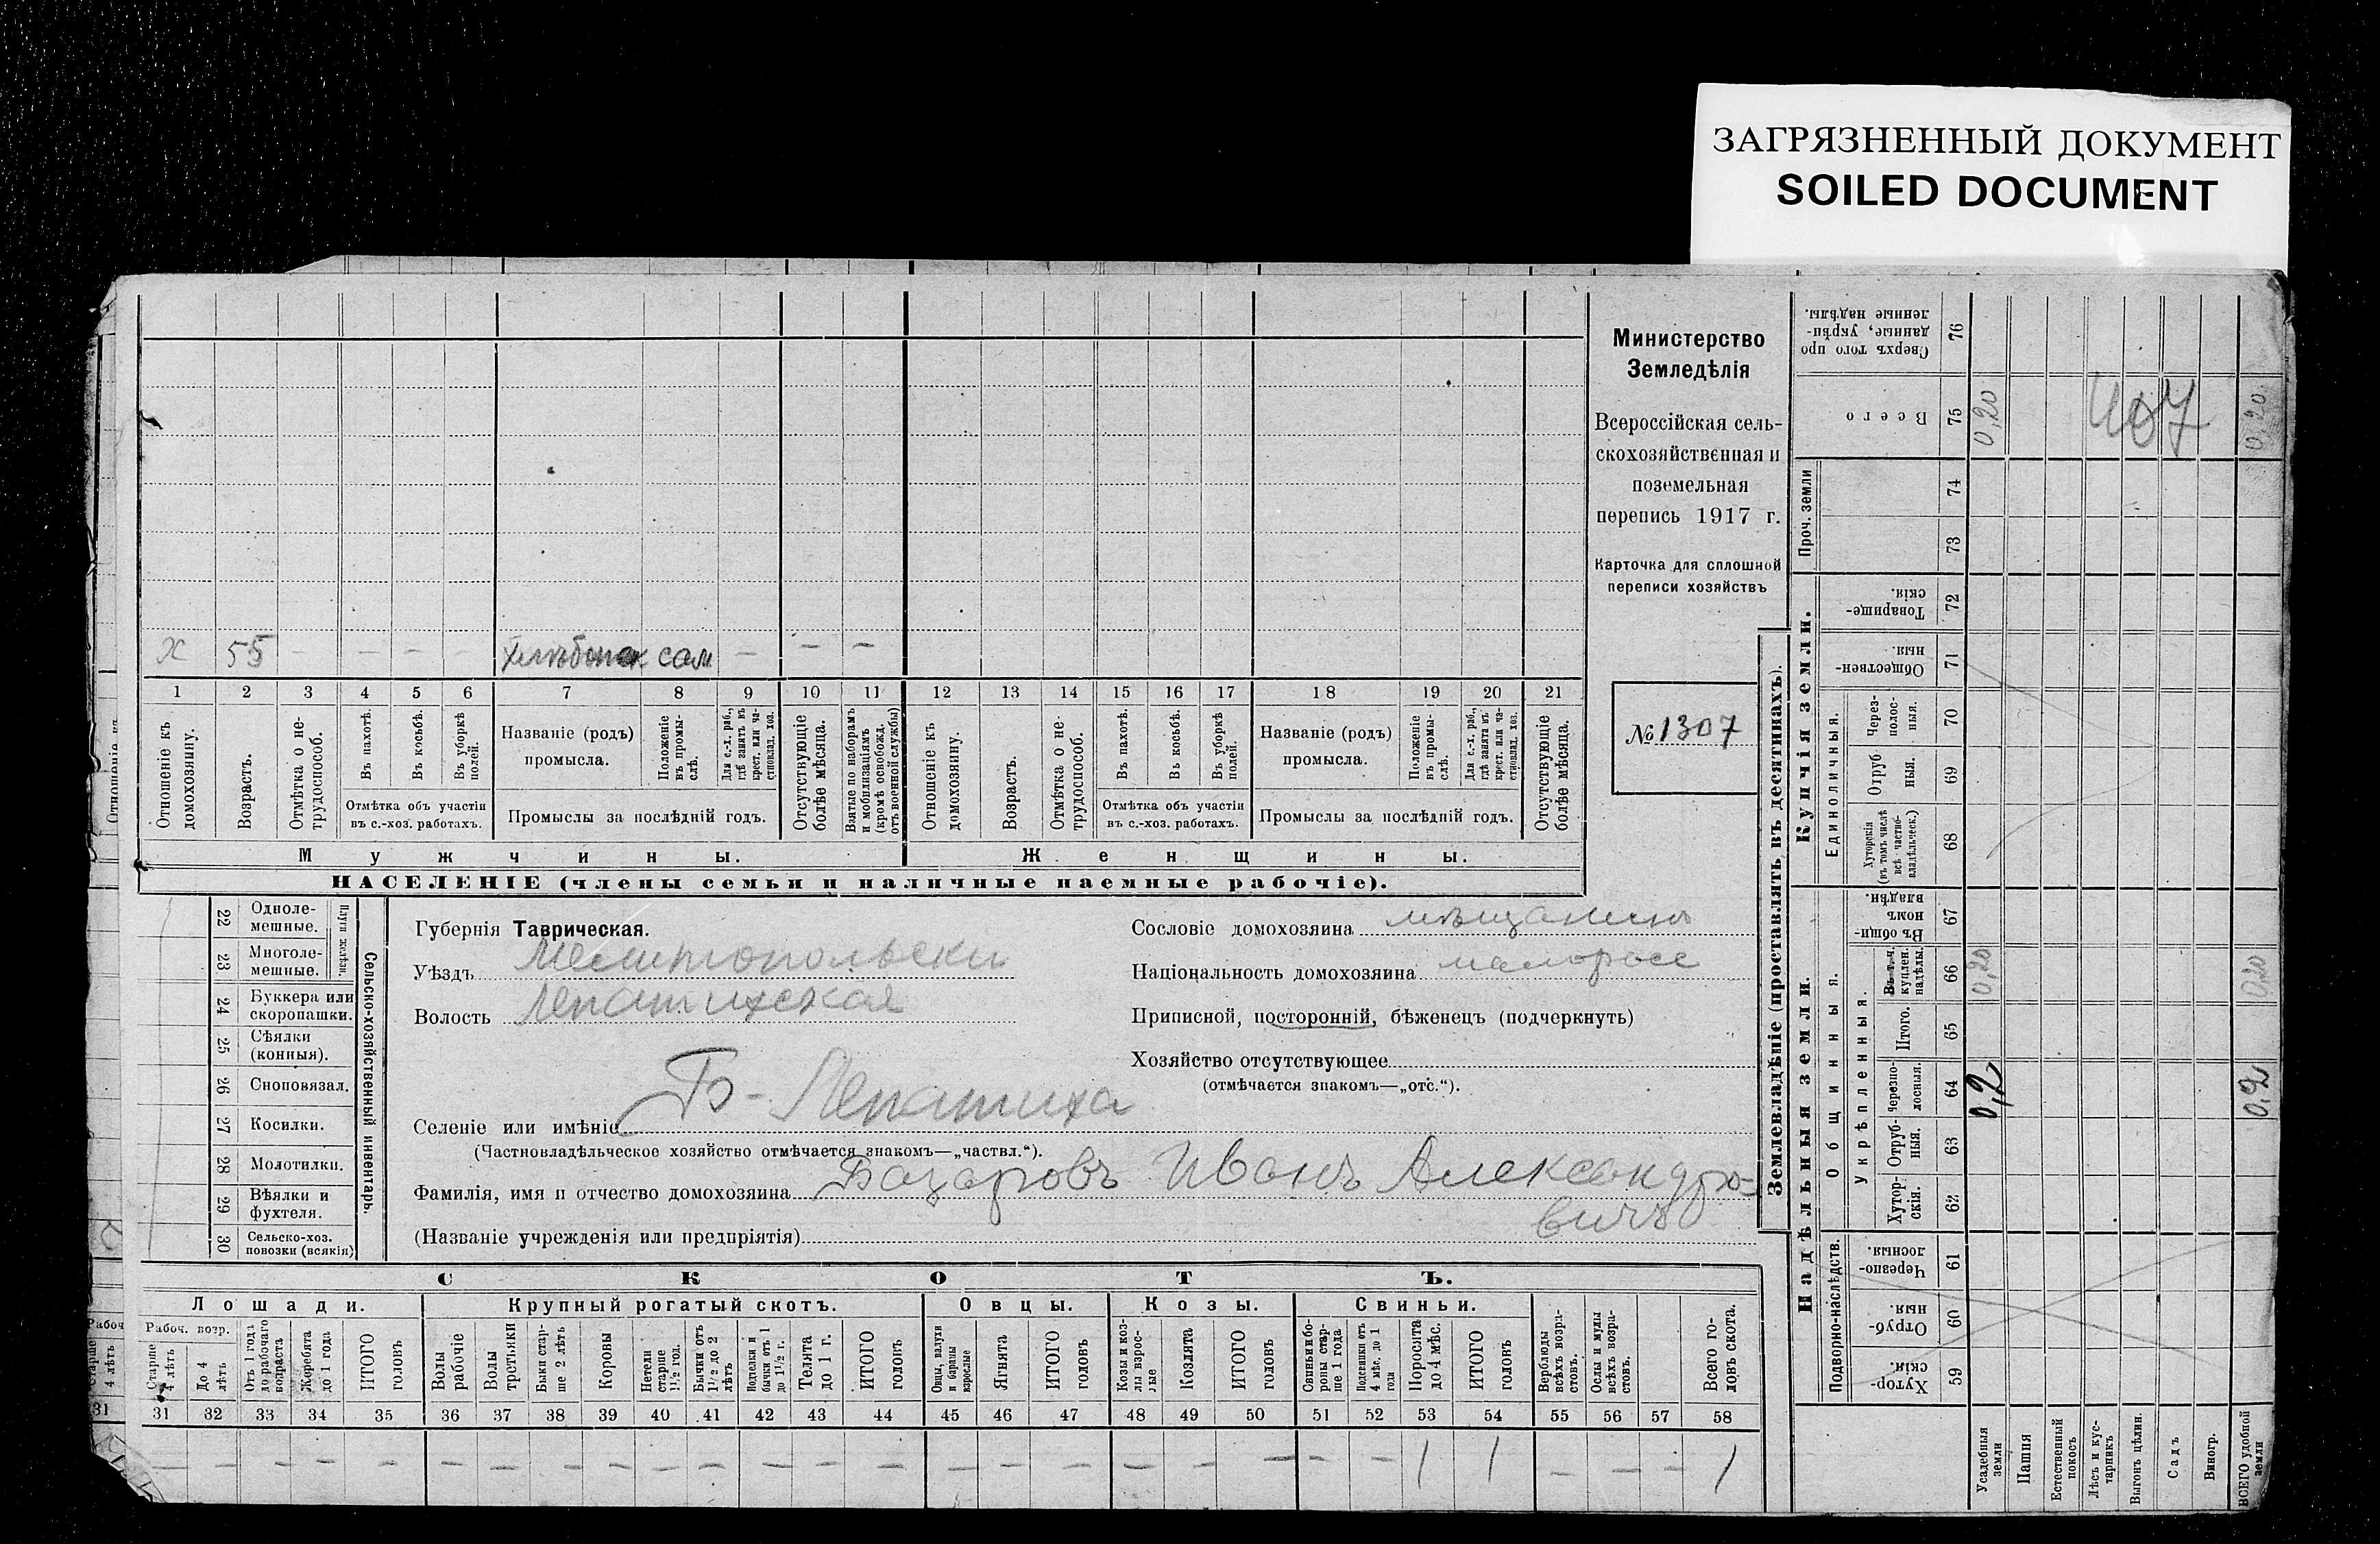 ЗАГРЯЗНЕННЫЙ ДОКУМЕНТ
SOILED DOCUMENT
Министерство
Земледѣлія
Всероссійская сель-
скохозяйственная и
поземельная
перепись 1917 г.
Карточка для сплошной
переписи хозяйствъ
№ 1307
х 55 — — — — хлѣбопаш сам — — —
1 2 3 4 5 6 7 8 9 10 11 12 13 14 15 16 17 18 19 20 21
Отношеніе къ домохозяину.
Возрастъ.
Отмѣтка о не-трудоспособ.
Въ пахотѣ.
Въ косьбѣ.
Въ уборкѣ полей.
Отмѣтка объ участіи
въ с.-хоз. работахъ.
Названіе (родъ)
промысла.
Положеніе въ промы-слѣ.
Для с.-х. раб., гдѣ занятъ въ крест. или ча-стновлад. хоз.
Промыслы за послѣдній годъ.
Отсутствующіе болѣе мѣсяца.
Взятые по наборамъ и мобилизаціямъ (кромѣ освобожд. отъ военной службы)
Отношеніе къ домохозяину.
Возрастъ.
Отмѣтка о не-трудоспособ.
Въ пахотѣ.
Въ косьбѣ.
Въ уборкѣ полей.
Отмѣтка объ участіи
въ с.-хоз. работахъ.
Названіе (родъ)
промысла.
Положеніе въ промы-слѣ.
Для с.-х. раб., гдѣ занята въ крест. или ча-стновлад. хоз.
Промыслы за послѣдній годъ.
Отсутствующіе болѣе мѣсяца.
Мужчины.
Женщины.
НАСЕЛЕНІЕ (члены семьи и наличные наемные рабочіе).
22 Одноле-мешные.
23 Многоле-мешные.
Плуги желѣзн.
24 Буккера или скоропашки.
25 Сѣялки (конныя).
26 Сноповязал.
27 Косилки.
28 Молотилки.
29 Вѣялки и фухтеля.
30 Сельско-хоз. повозки (всякія)
Сельско-хозяйственный инвентарь.
Губернія Таврическая.
Уѣздъ Мелитопольски
Волость Лепатихская
Селеніе или имѣніе Б-Лепатиха
(Частновладѣльческое хозяйство отмѣчается знакомъ—„частвл.“).
Фамилія, имя и отчество домохозяина Базаровъ Иванъ Александро-
вичъ
(Названіе учрежденія или предпріятія)
Сословіе домохозяина мѣщанинъ
Національность домохозяина малоросс
Приписной, посторонній, бѣженецъ (подчеркнуть)
Хозяйство отсутствующее
(отмѣчается знакомъ—„отс.“).
СКОТЪ.
Лошади. Крупный рогатый скотъ. Овцы. Козы. Свиньи.
Рабоч. возр.
Старше 4 лѣтъ
До 4 лѣтъ
Отъ 1 года до рабочаго возраста
Жеребята до 1 года
ИТОГО головъ
Волы рабочіе
Волы третьяки
Быки стар-ше 2 лѣтъ
Коровы
Нетели старше 1½ год.
Бычки отъ 1½ до 2 лѣтъ
Подтелки и бычки отъ 1 до 1½ г.
Телята до 1 г.
ИТОГО головъ
Овцы, валухи и бараны взрослые
Ягнята
ИТОГО головъ
Козы и коз-лы взрос-лые
Козлята
ИТОГО головъ
Свиньи и бо-ровы стар-ше 1 года
Подсвинки отъ 4 мѣс. до 1 года
Поросята до 4 мѣс.
ИТОГО головъ
Верблюды всѣхъ возра-стовъ.
Ослы и мулы всѣхъ возра-стовъ.
Всего го-ловъ скота.
31 32 33 34 35 36 37 38 39 40 41 42 43 44 45 46 47 48 49 50 51 52 53 54 55 56 57 58
— — — — — — — — — — — — — — — — — — — — — — 1 1 — — — 1
Землевладѣніе (проставлять въ десятинахъ).
Купчія земли.
Надѣльныя земли.
Сверхъ того про-данные, укрѣп-ленные надѣлы. 76
Всего 75 0,20 407 0,20
Проч. земли
74
73
Товарище-скія. 72
Обществен-ныя. 71
Единоличныя.
Через-полос-ныя. 70
Отруб-ныя. 69
Хуторскія (въ томъ числѣ всѣ частно-владѣльческ.) 68
Общинныя.
Въ общин-номъ владѣн. 67
Укрѣпленныя.
Въ т. ч. куплен. надѣлы. 66 0,20 0,20
Итого. 65
Черезпо-лосныя. 64 0,2 0,2
Отруб-ныя. 63
Хутор-скія. 62
Подворно-наслѣдств.
Черезпо-лосныя. 61
Отруб-ныя. 60
Хутор-скія. 59
Усадебныя земли
Пашня
Естественный покосъ
Лѣсъ и кус-тарникъ
Выгонъ цѣлин.
Садъ
Виногр.
ВСЕГО удобной земли